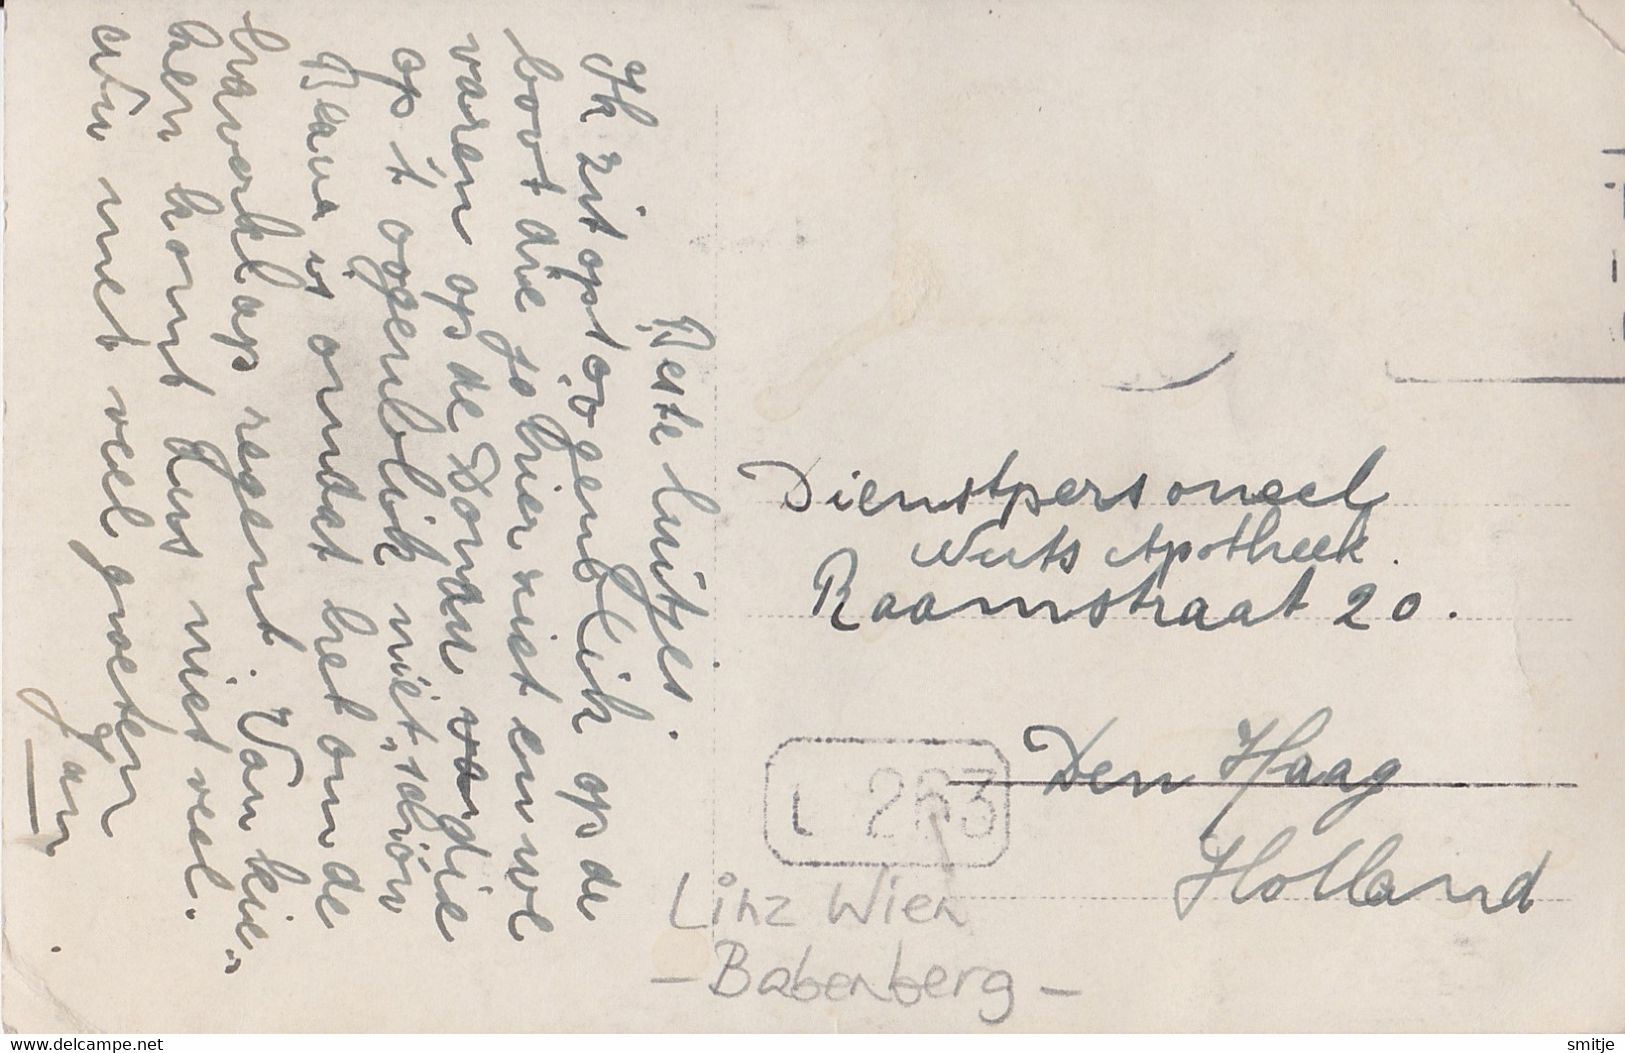 Beste luitjes.
Ik zit op t oogenblik op de
boot die je hier ziet en we
varen op de Donau die
op 't ogenblik niet "schön
Blau is omdat het om de
haverklap regent. Van kie„
ken komt dus niet veel.
adu met veel groeten
Jan
Dienstpersoneel
Nuts Apotheek.
Raamstraat 20.
Den Haag
Holland
L 263
Linz Wien
- Babenberg -
www.delcampe.net
smitje